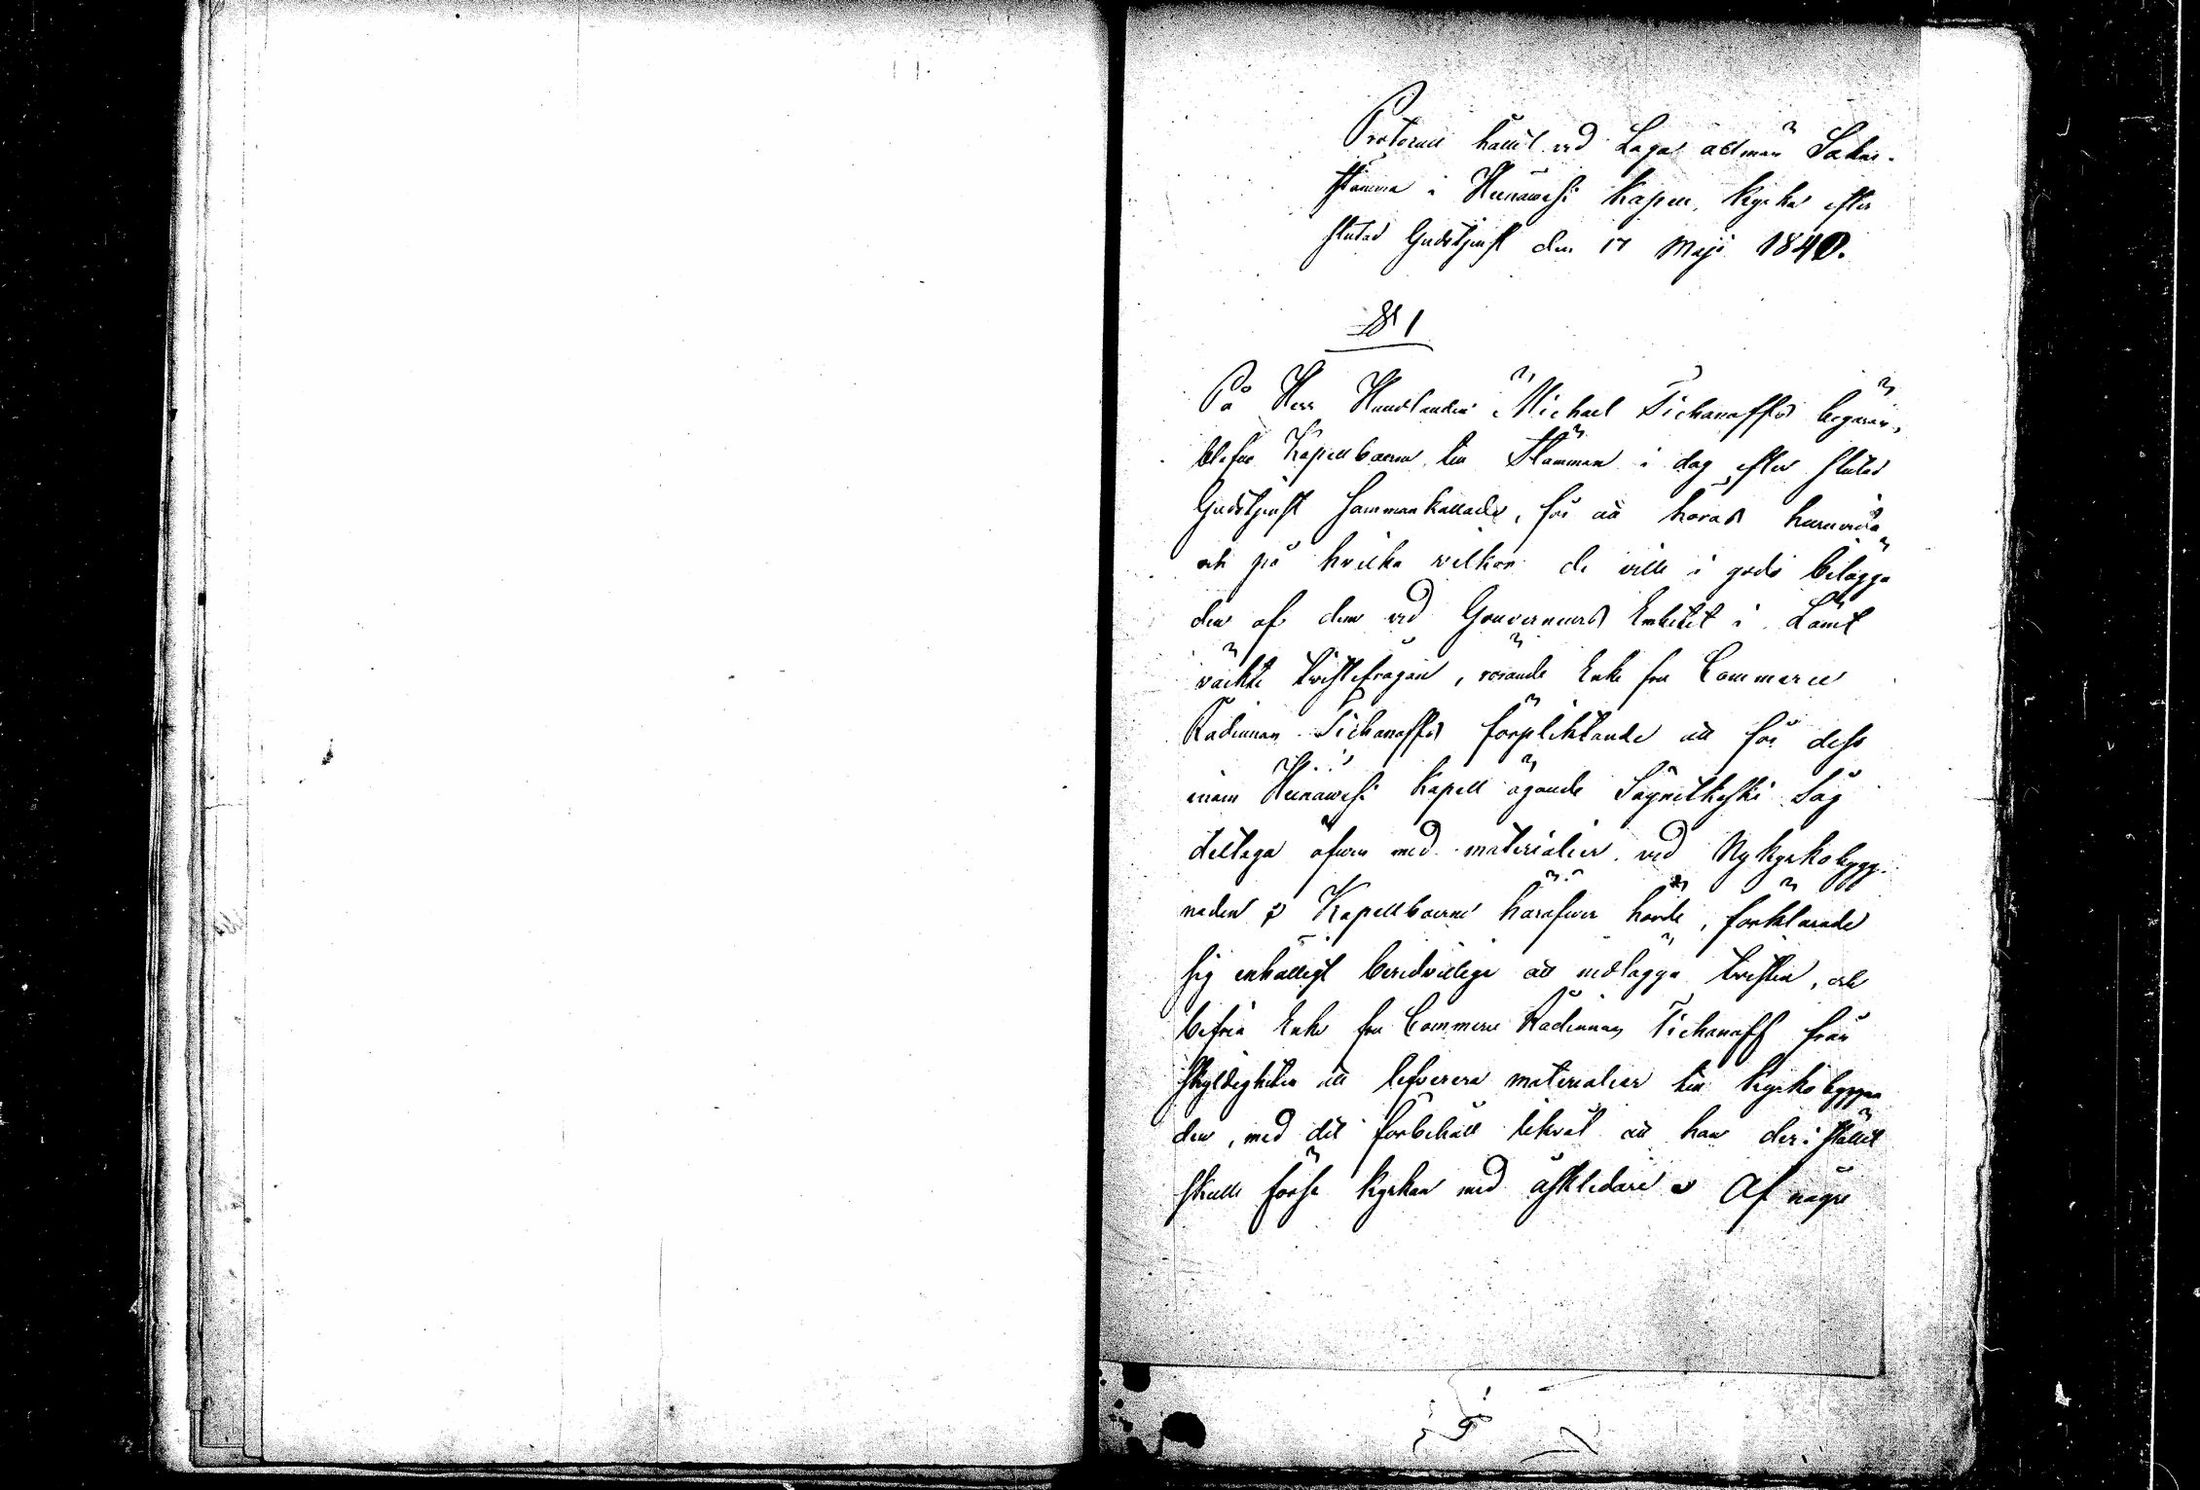 Protocoll hållit vid Laga allmän Sokne-
stämma i Heinäwesi Kapell Kyrka efter
slutad Gudstjenst den 17 Maji 1840.
§ 1
På Herr Handlanden Michael Tichanoffs begäran,
blefvo Kapellboerne till Stämman i dag efter slutad
Gudstjenst sammankallade, för att höras huruvida
och på hvilka vilkor de ville i godo bilägga
den af dem vid Gouverneurs Embetet i Länet
väckte twistefrågan, rörande Enke fru Commerce
Rådinnan Tichanoffs förpliktande att för dess
inom Heinäwesi Kapell ägande Säynetkoski Såg
deltaga äfven med materialier vid Nykyrkobygg-
naden Kapellboerne häröfver hörde, förklarade
sig enhälligt beredvillige att nedlägga twisten, och
befria Enke fru Commerce Rådinnan Tichanoff från
skyldigheten att lefverera materialier till Kyrkobyggna
den, med det förbehåll likväl att hon der i stället
skulle förse Kyrkan med åskledare Af någre